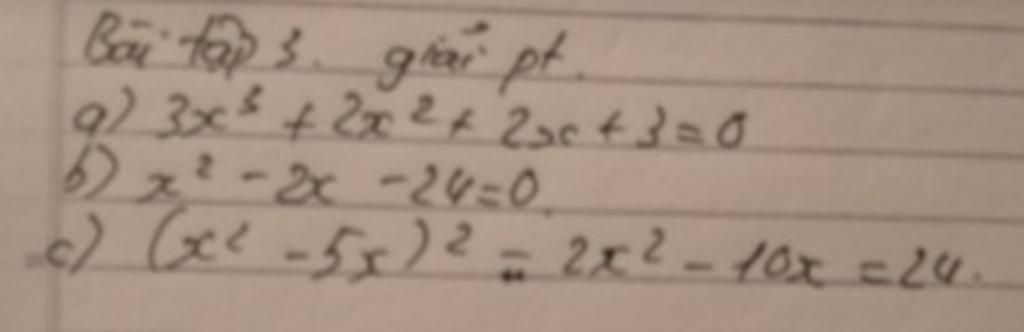 Bài tập 3. giải pt.
a) 3x³ + 2x² + 2x + 3 = 0
b) x² - 2x - 24 = 0.
c) (x² - 5x)² = 2x² - 10x = 24.